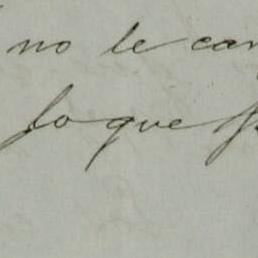 no le can
lo que